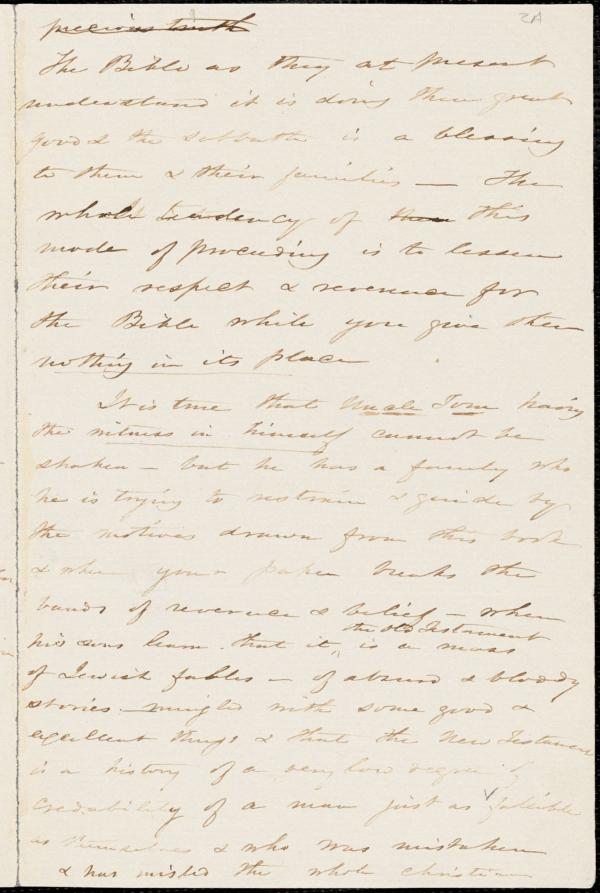 2A
precious truth
The Bible as they at present
understand it is doing them great
good & the sabbath is a blessing
to them & their families — The
whole tendency of them this
mode of proceeding is to lessen
their respect & reverence for
the Bible while you give them
nothing in its place
It is true that Uncle Tom having
the witness in himself cannot be
shaken — but he has a family who
he is trying to restrain & guide by
the motives drawn from this book
& when your paper breaks the
bands of reverence & belief — when
the Old Testament
his sons learn that it ^ is a mass
of Jewish fables — of absurd & bloody
stories mingled with some good &
excellent things & that the New Testament
is a history of a very low degree of
credability of a man just as fallible
as themselves & who was mistaken
& has misled the whole christian